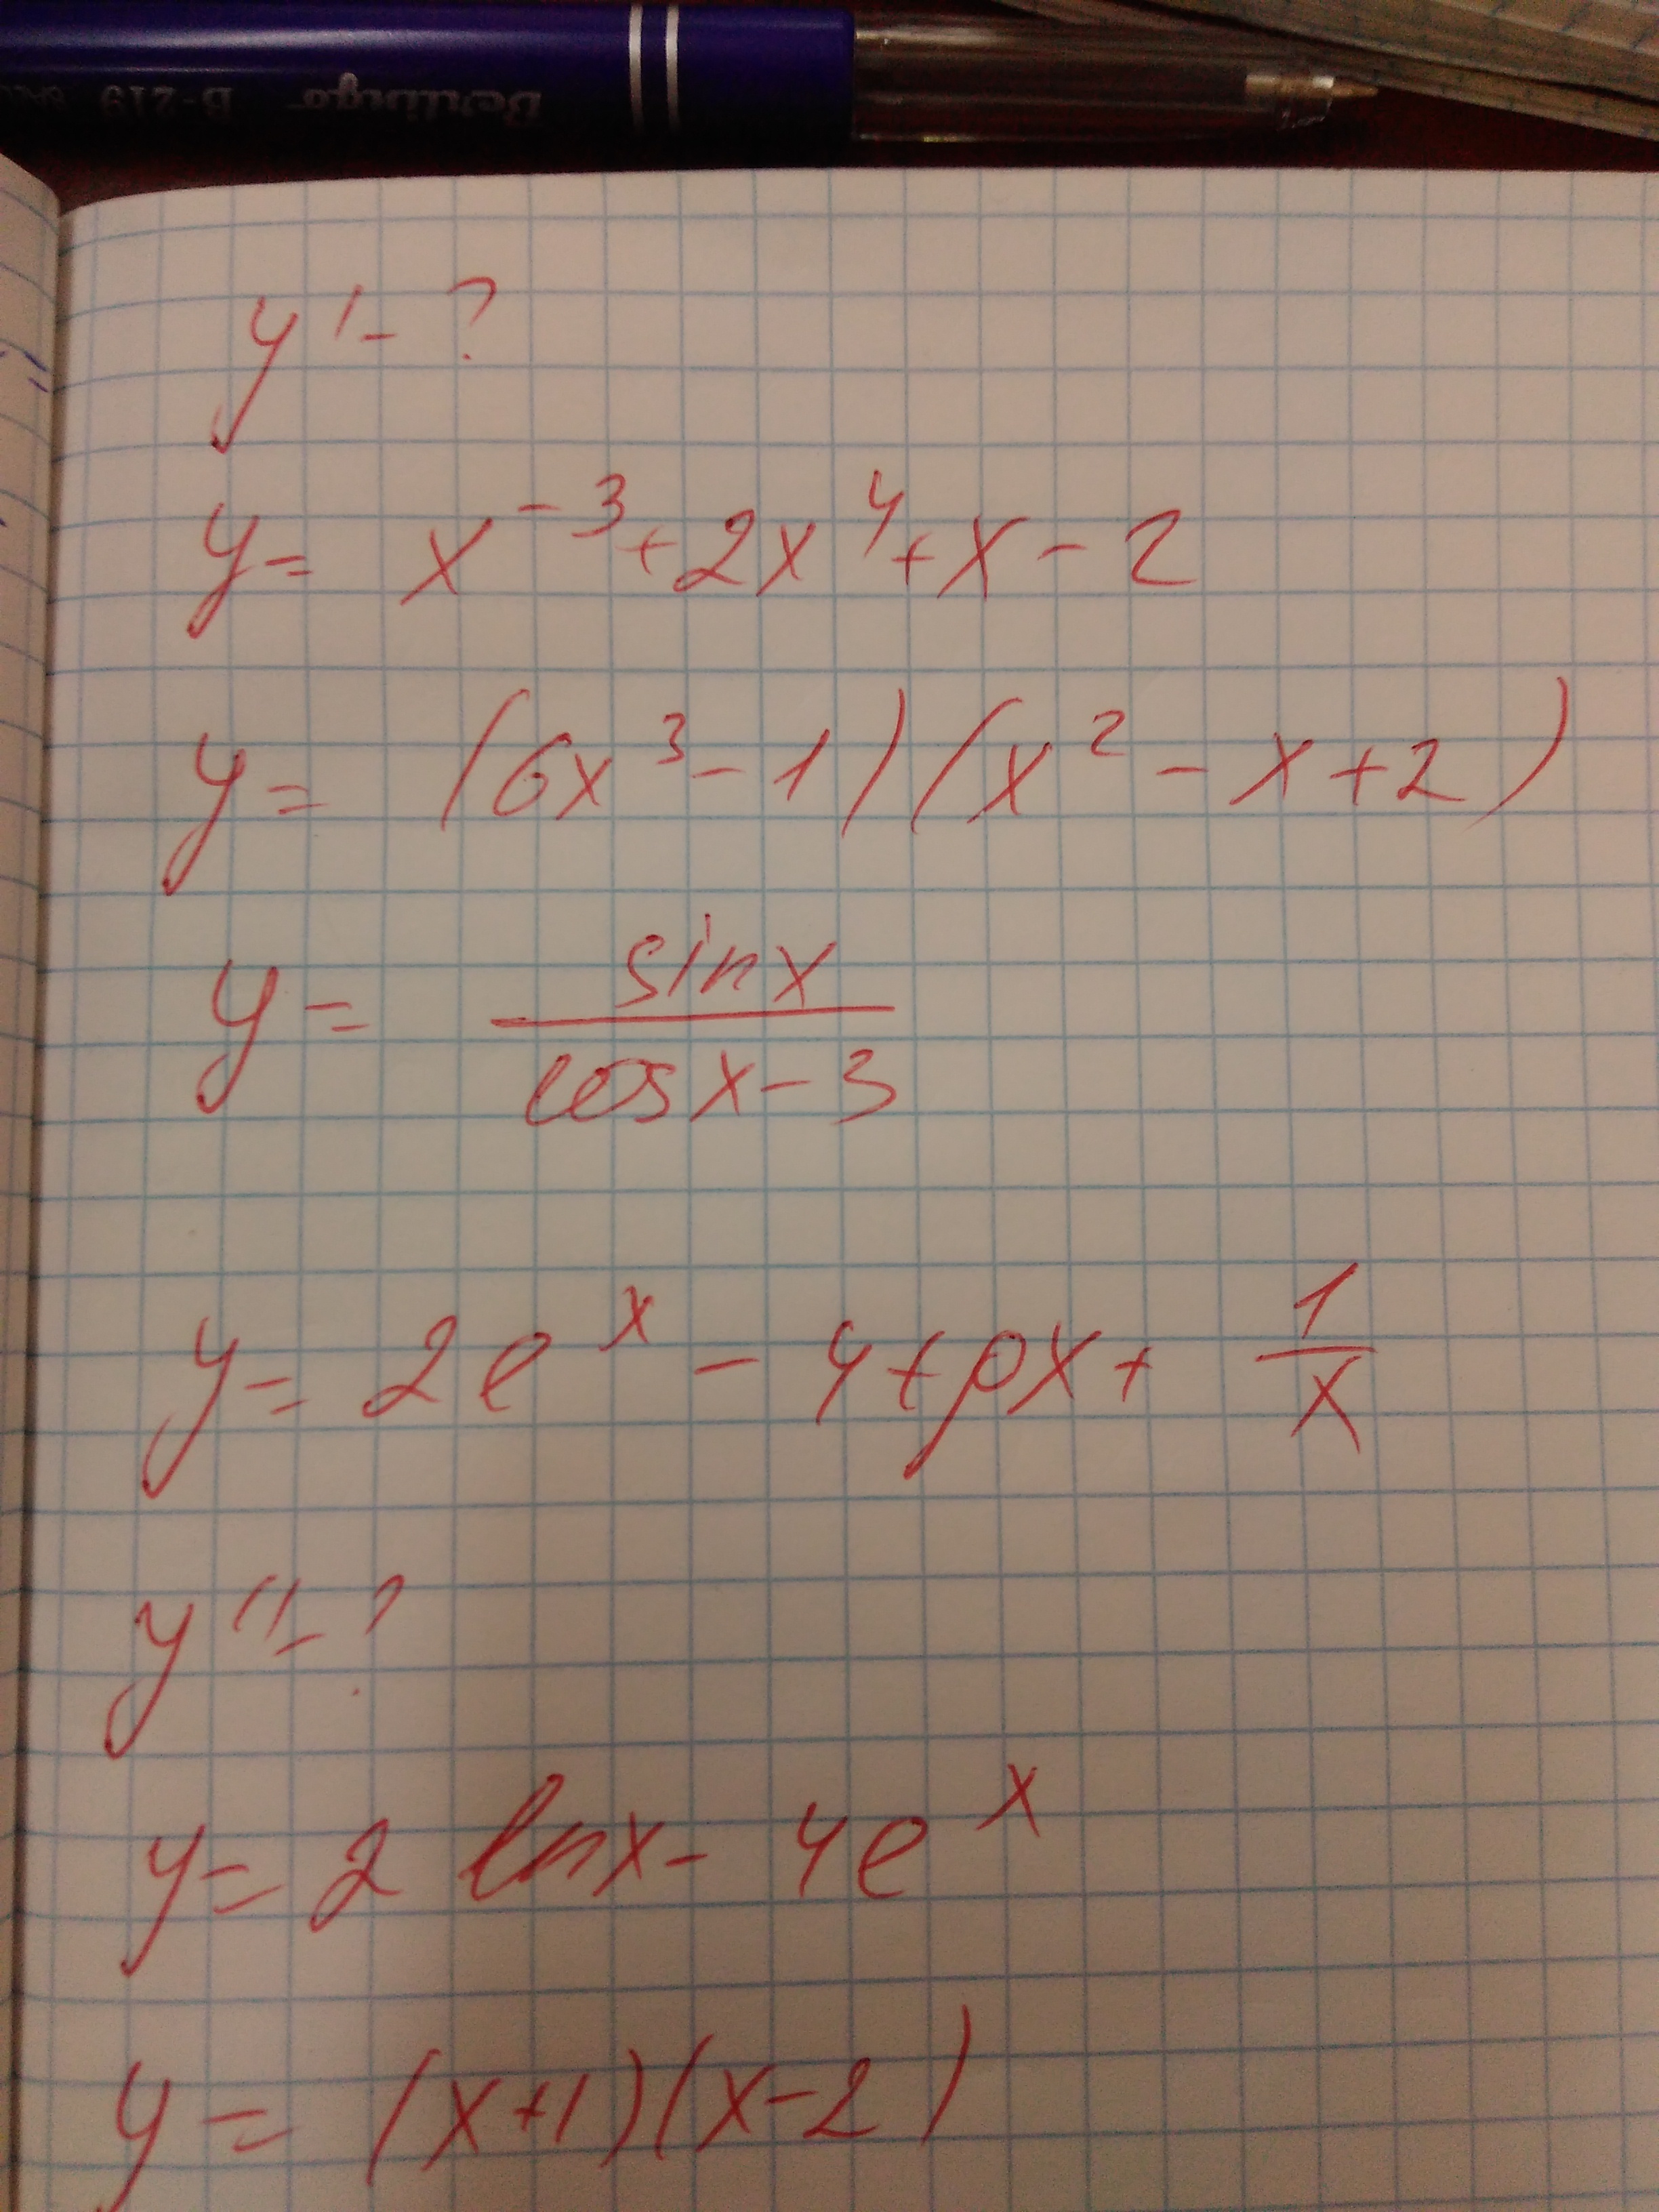 Berlingo B-219
y' - ?
y = x⁻³ + 2x⁴ + x - 2
y = (6x³ - 1)(x² - x + 2)
y = sinx / (cosx - 3)
y = 2eˣ - 4tgx + 1/x
y'' - ?
y = 2 lnx - 4eˣ
y = (x+1)(x-2)